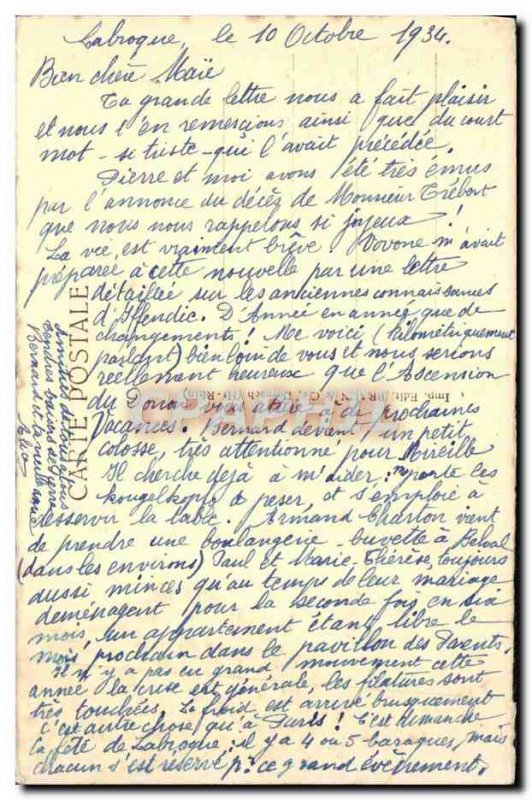 Labroque, le 10 Octobre 1934.
Bien chère Maïe
Ta grande lettre nous a fait plaisir
et nous t'en remercions ainsi que du court
mot - si triste - qui l'avait précédée.
Pierre et moi avons été très émus
par l'annonce du décès de Monsieur Trébert
que nous nous rappelons si joyeux !
La vie est vraiment brève. Vovone m'avait
préparée à cette nouvelle par une lettre
détaillée sur les anciennes connaissances
d'Iffendic. D'Année en année que de
changements ! Me voici (kilométriquement
parlant) bien loin de vous et nous serions
réellement heureux que l'Ascension
du Donon vous attire à de prochaines
vacances. Bernard devient un petit
colosse, très attentionné pour Mireille
Il cherche déjà à m'aider : porte les
kougelkopfs à peser, et s'emploie à
desservir la table. Armand Charton vient
de prendre une boulangerie - buvette à Belval
(dans les environs) Paul et Marie-Thérèse, toujours
aussi minces qu'au temps de leur mariage
déménagent pour la seconde fois en six
mois, un appartement étant libre le
mois prochain dans le pavillon des Parents.
Il n'y a pas eu grand mouvement cette
année la crise est générale, les filatures sont
très touchées. Le froid est arrivé brusquement
c'est autre chose qu'à Paris ! C'est dimanche
la fête de Labroque ; il y a 4 ou 5 baraques, mais
chacun s'est réservé pr ce grand évènement.
Amitiés de tous à tous
Tendres baisers de Pierre
Bernard et la
CARTE POSTALE
Imp. Edit. BRAUN & Cie, Dornach (Ht-Rhin)